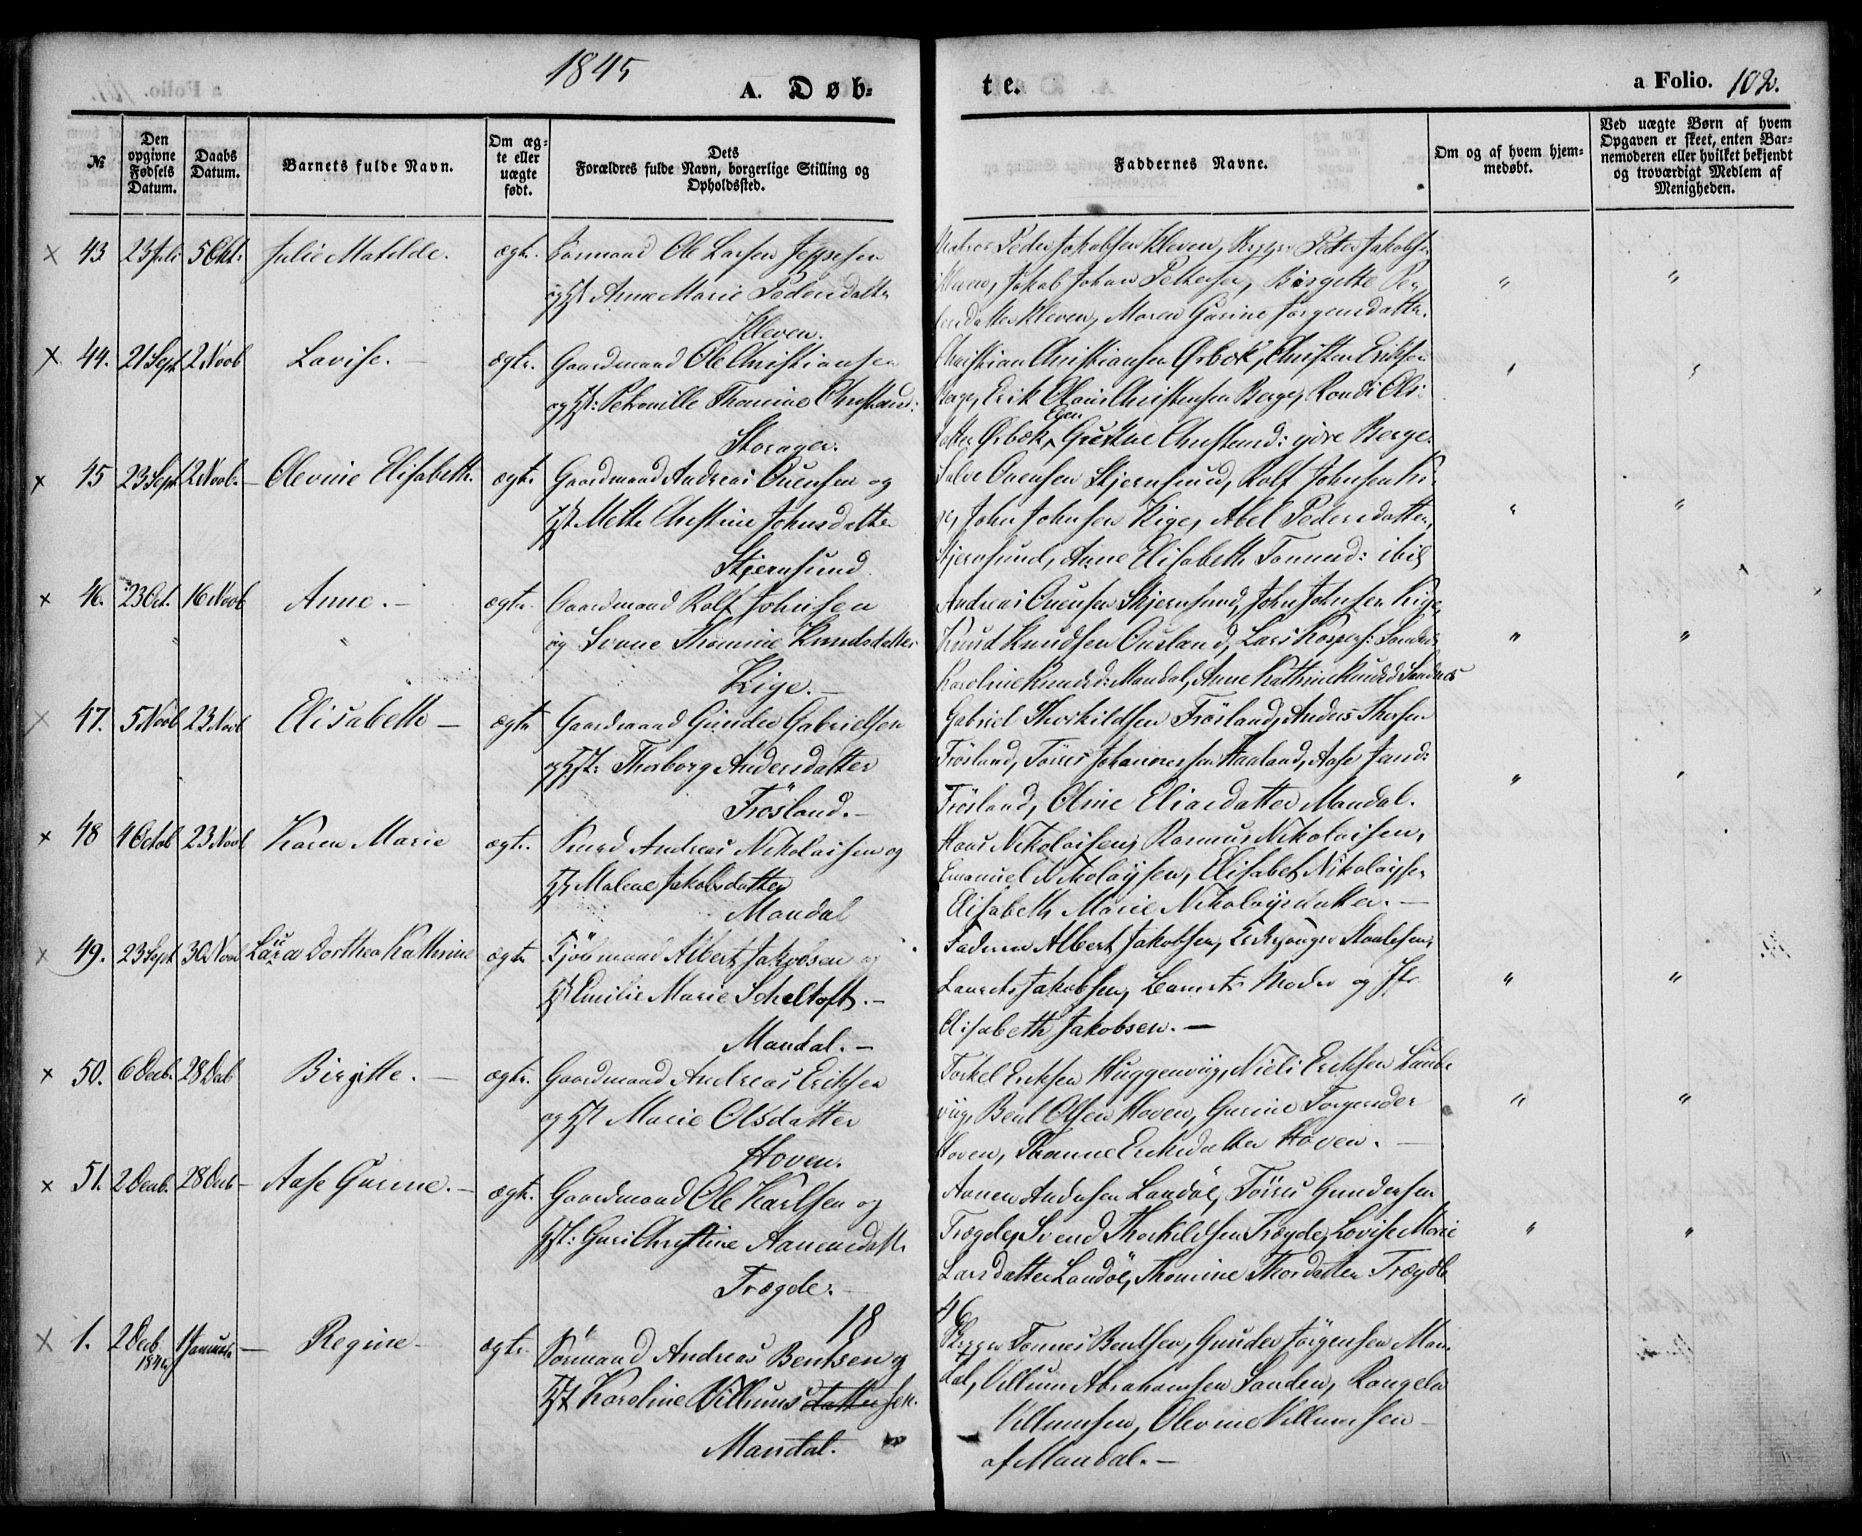 1845
A. Døb-
te.
a Folio. 102.
№
Den opgivne Fødsels Datum.
Daabs Datum.
Barnets fulde Navn.
Om ægte eller uægte født.
Dets Forældres fulde Navn, borgerlige Stilling og Opholdssted.
Faddernes Navne.
Om og af hvem hjemmedøbt.
Ved uægte Børn af hvem Opgaven er skeet, enten Barnemoderen eller hvilket bekjendt og troværdigt Medlem af Menigheden.
× 43 23 Juli 5 Okt: Julie Matilde. ægte. Sømand Ole Larsen Jeppesen
og Hst Anne Marie Pedersdatter
Kleven.
Peder Jakobsen Kleven, Peter Jakobsen
Jakob Johan Pettersen, Birgitte Pe-
dersdatter Kleven, Maren Gurine Jørgensdatter.
" "
× 44. 21 Sept 2 Novb Lovise. — ægte. Gaardmand Ole Christiansen
og Hst: Petronille Thomine Christiand:
Storager.
Christian Christiansen Ørbæk, Christen Eriksen
Berge, Erik Christensen Berge, Rondi Ols-
datter Ørbæk, Christiand: ydre Berge.
" "
× 45 23 Sept 2 Novb. — Olevine Elisabeth. ægte. Gaardmand Andreas Ouensen og
Hst Mette Christine Johnsdatter
Skjernsund
Salve Ouensen Skjernsund, Rolf Johnsen Ki-
ge, John Johnsen Kige, Abel Pedersdatter,
Skjernsund, Anne Elisabeth Tommd: ibid
" "
× 46. 23 Oct. 16 Novb Anne. — ægte. Gaardmand Rolf Johnsen
og Thomine Knudsdatter
Kige. —
Andreas Ouensen Skjernsund, John Johnsen Kige,
Knud Knudsen Ousland, Lars
Karoline Knudsd: Mandal, Anne Kathrine Knudsd Sandnes
" "
× 47. 5 Novb 23 Novb Elisabeth — ægte Gaardmand Gunder Gabrielsen
og Hst: Thorborg Andersdatter
Frøsland. —
Gabriel Thorkildsen Frøsland, Anders Thorsen
Frøsland, Tørres Johannessen Haaland, Aase
Frøsland, Oline Eliasdatter Mandal.
" "
× 48 4 Octob 23 Novb Karen Marie ægte. Andreas Nikolaisen og
Hst Malene Jakobsdatter
Mandal
Hans Nikolaisen, Rasmus Nikolaisen,
Emanuel Nikolaysen, Elisabet Nikolaysen
Elisabeth Marie Nikolaysdatter. —
× 49. 23 Sept 30 Novb Laura Dorthea Kathrine ægte Albert Jakobsen og
Hst Emilie Marie Scheltoft. —
Mandal. —
Faderen Albert Jakobsen, Stoalesen,
Laurets Jakobsen, Barnets Moder og Jfr
Elisabeth Jakobsen. —
" "
× 50. 6 Decb. 28 Decb Birgitte. — ægte. Gaardmand Andreas Eriksen
og Hst Marie Olsdatter
Hoven.
Torkel Eriksen Huggenvig, Niels Eriksen
vig, Bent Olsen Hoven, Gurine
Hoven, Eriksdatter Hoven. —
" "
× 51. 2 Decb. 28 Decb — Aase Gurine. — ægte. Gaardmand Ole Karlsen og
Hst: Guri Christine Aanensdatter
Trægde. —
Aanen Andersen Landøe, Tørres Gundersen
Trægde, Svend Thorkildsen Trægde, Lovise Marie
Larsdatter Landøe, Thomine Thorsdatter Trægde
" "
18
46
× 1. 2 Decb 1 Januar — Regine — ægte. Sømand Andreas Bentsen og
Hst Karoline Villumsdattersen.
Mandal.
Tønnes Bentsen, Gunder Jørgensen Man-
dal, Villum Abrahamsen Sanden, Rangela
Villumsen, Olevine Villumsen —
af Mandal. —